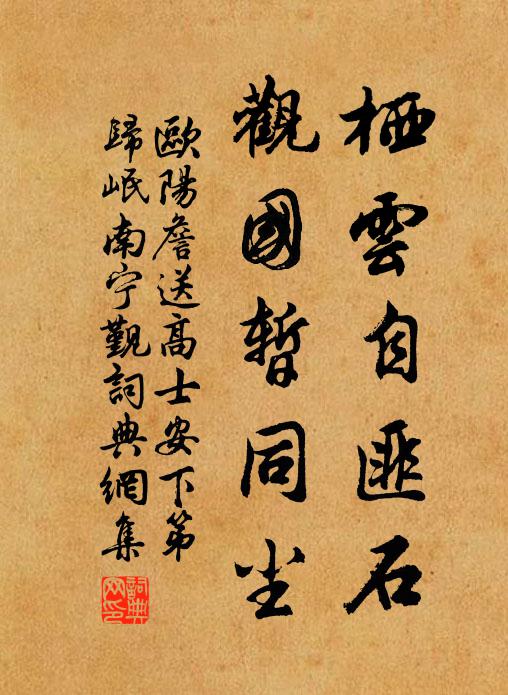 栖雲自匪石
觀國暫同尘
歐陽詹送高士安下第
歸岷南宁觐詞典網集
詞典
网印